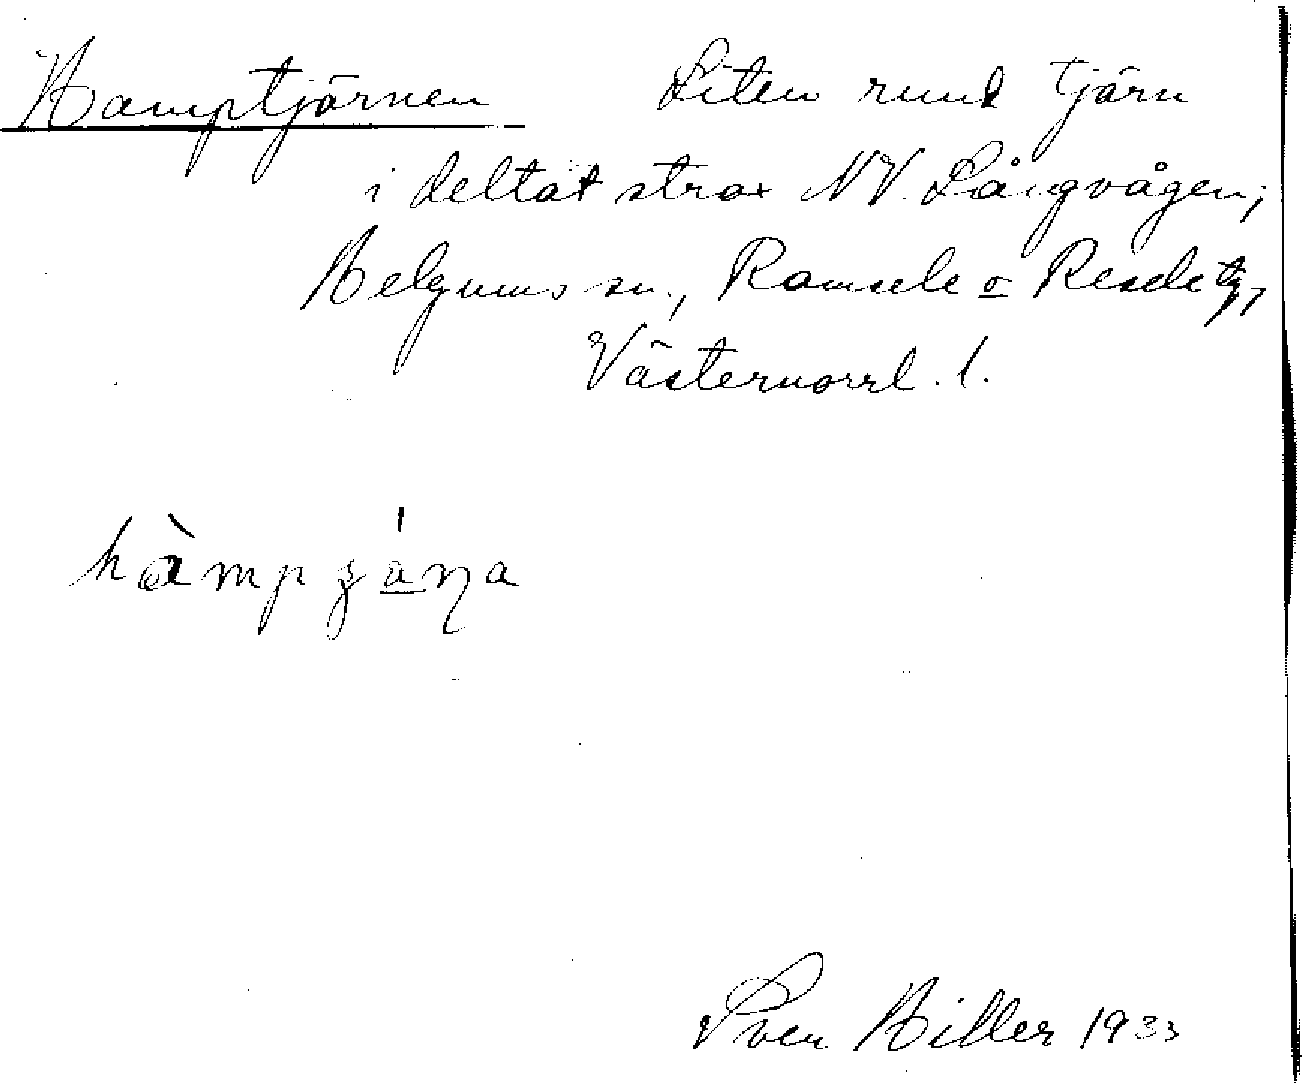 Hamptjärnen Liten rund tjärn
i deltat strax NV. Långvågen,
Helgums sn., Ramsele o Resele tg,
Västernorrl. l.
hàmpʒána
Sven Hiller 1933